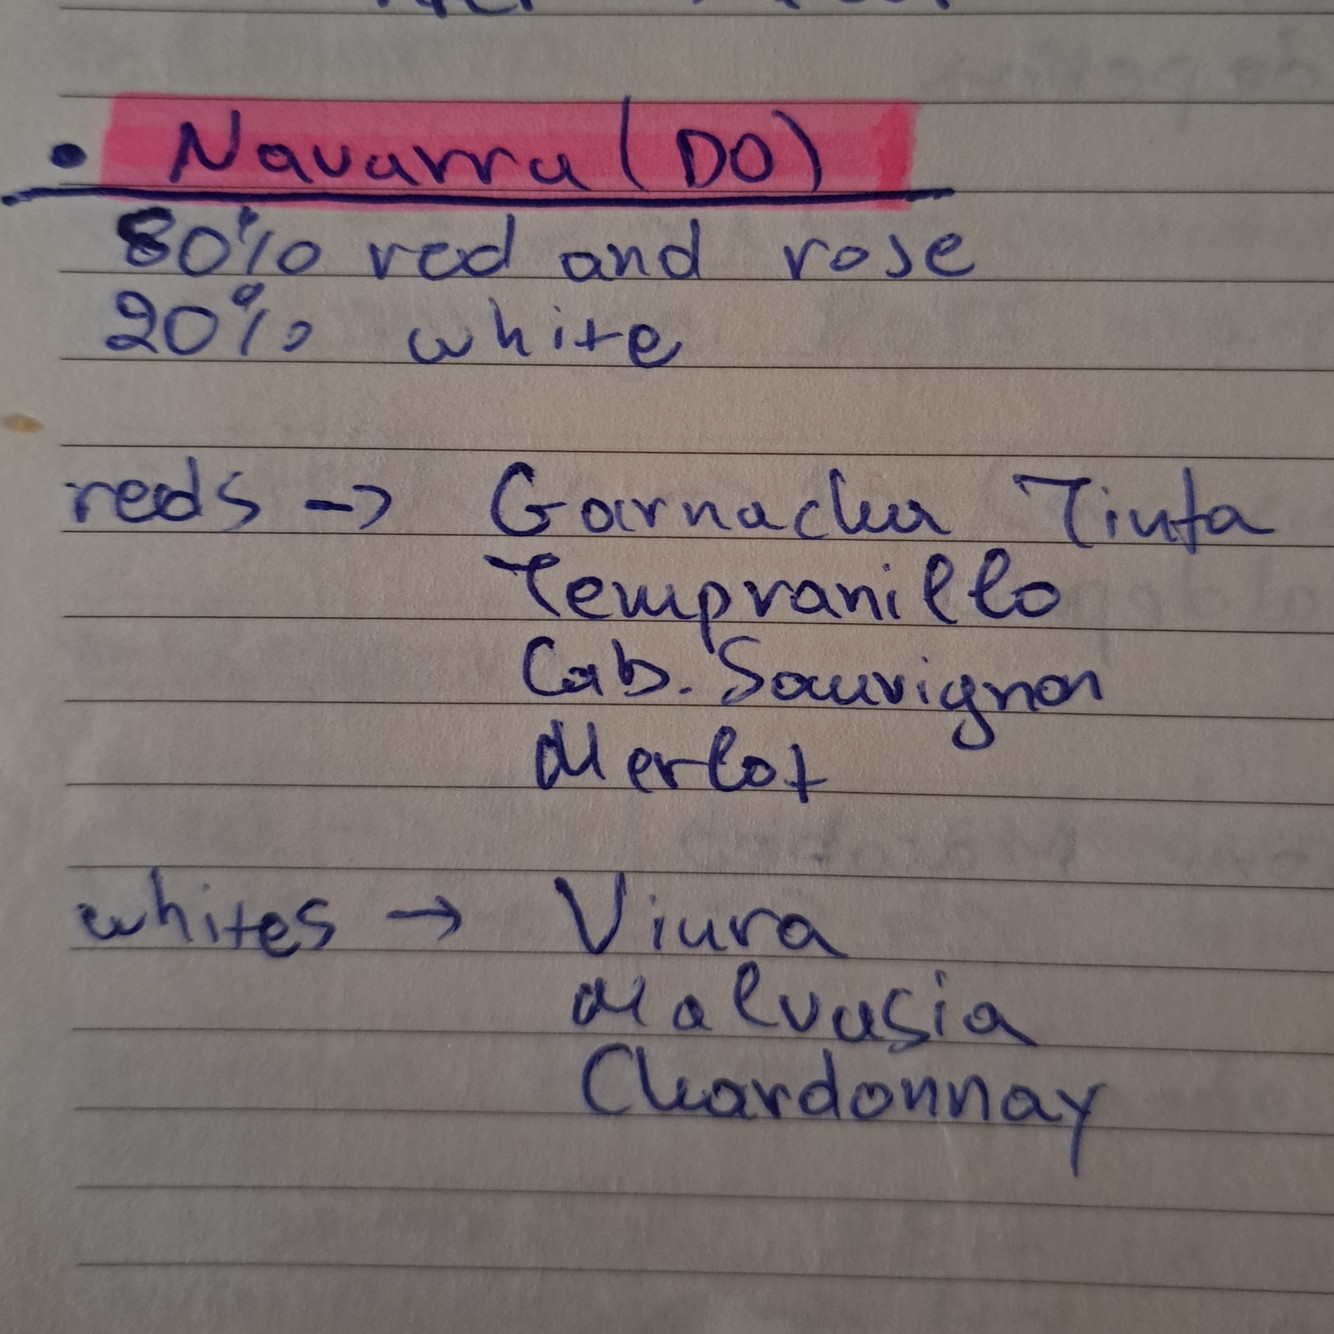 • Navarra (DO)
80% red and rose
20% white
reds -> Garnacha Tinta
Tempranillo
Cab. Sauvignon
Merlot
whites → Viura
Malvasia
Chardonnay